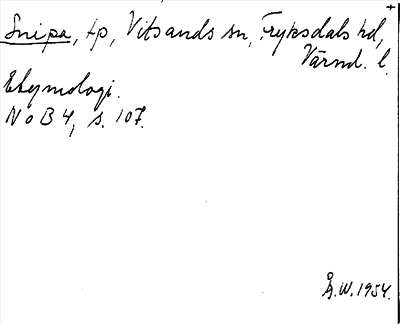 Snipa, tp, Vitsands sn, Fryksdals hd,
Värml. l.
Etymologi.
NoB 4, s. 107.
Å.W. 1954.